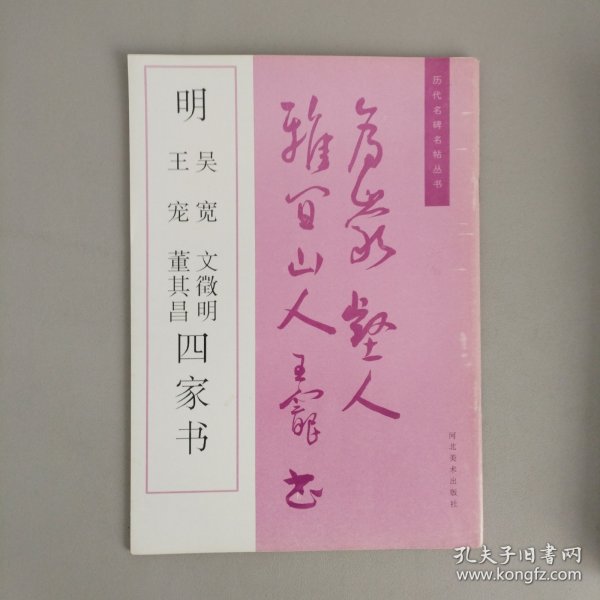 历代名碑名帖丛书
明
吴宽 文徵明
王宠 董其昌
四家书
雅宜山人王寵书
河北美术出版社
孔夫子旧书网
www.kongfz.com